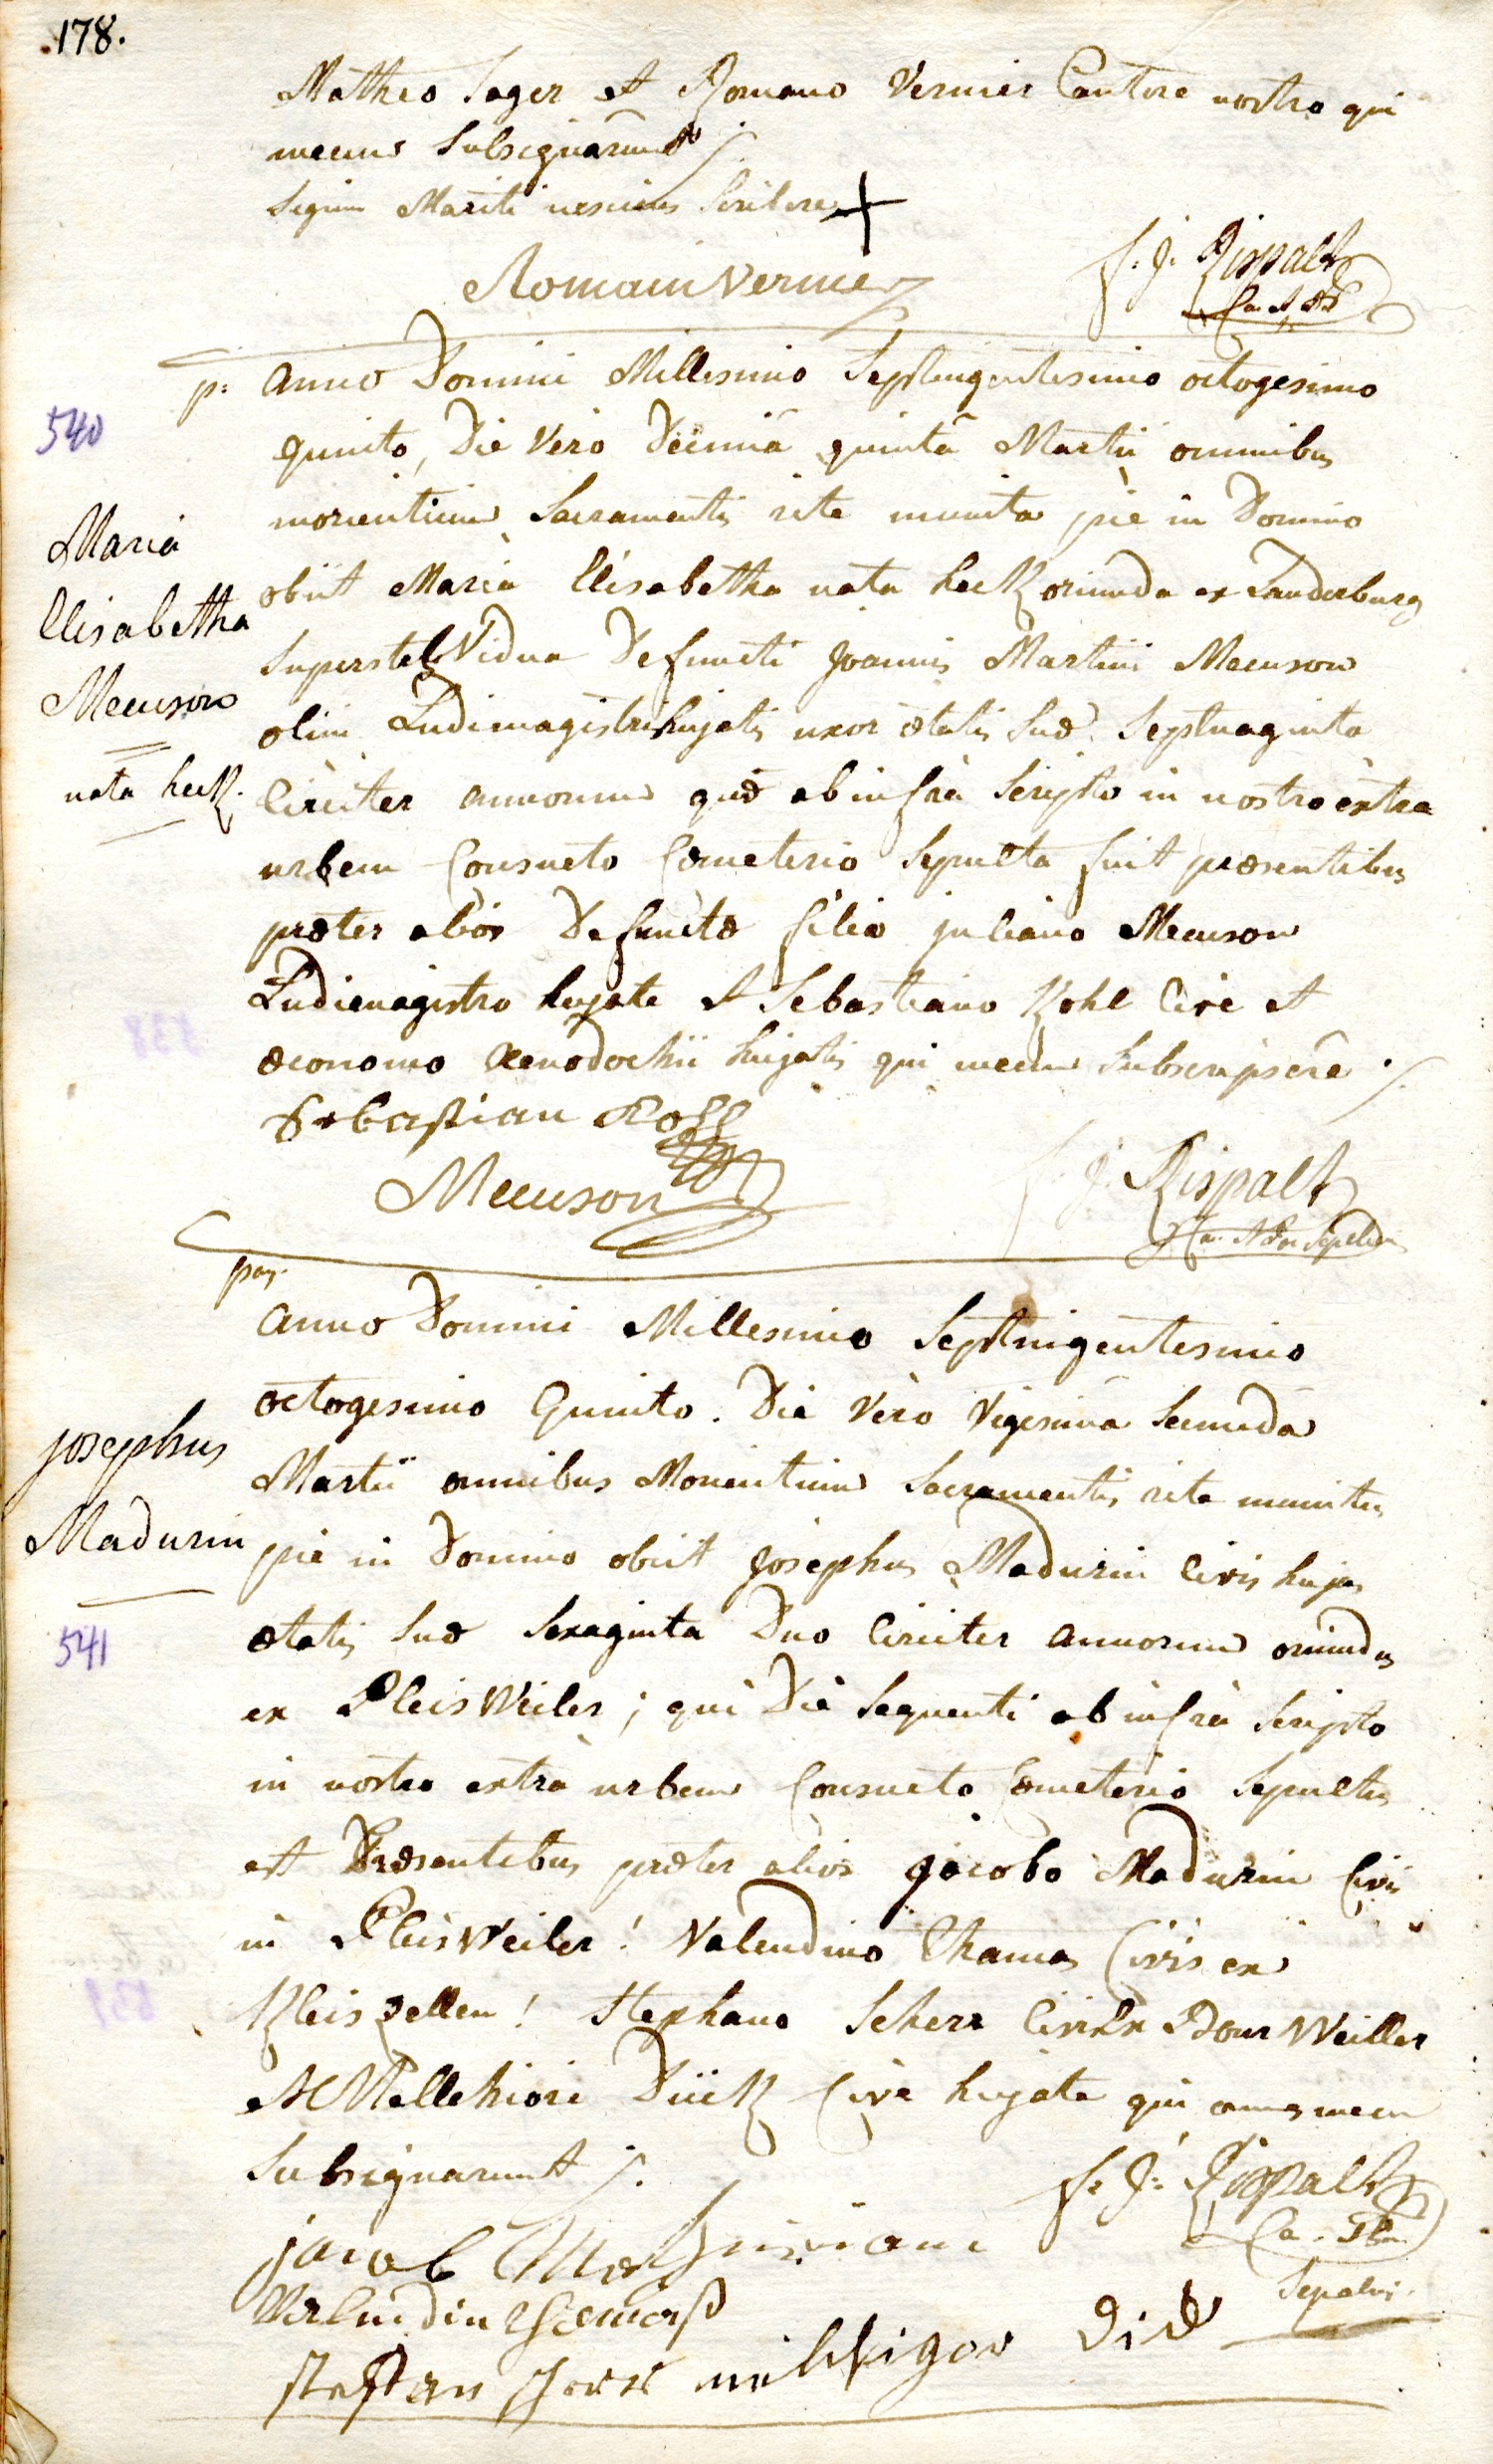 178.
Matheo Sager et Romano Vermer Cantore nostro qui
mecum Subsignarunt ./.
Signum Mariti nescientis Scribere +
Romain Vermer
f. J. Rispalt
p: Anno Domini Millesimo Septuigentesimo octogesimo
540
quinto, Die Vero Decimâ quintâ Martii omnibus
morientium Sacramentis rite munita piè in Domino
Maria
obiit Maria Elisabetha nata heck oriunda ex Lauderburg
Elisabetha
Superstes Vidua Defuncti Joannis Martini Meeuson
Meeuson
olim Ludimagistri hujatis uxor ætatis suæ Septuaginta
nata heck.
Circiter annorum quæ ab infrà Scripto in nostro extra
urbem Consueto Cœmeterio Sepulta fuit præsentibus
præter alios Defunctæ filio juliano Meeuson
Ludimagistro hujate et Sebastiano Kohl Cive et
œconomo Xenodochii hujatis qui mecum Subscripsere ./.
Sebastian Kohl
Meeuson
f. J. Rispalt
Anno Domini Millesimo Septuigentesimo
octogesimo Quinto. Die Vero Vigesima Secunda
Josephus
Martii omnibus Morientium Sacramentis rite munitus
Madurin
pie in Domino obiit Josephus Madurin Civis hujas
541
ætatis suæ Sexaginta Duo Circiter annorum oriundus
ex Pleisweiler; qui Die Sequenti ab infrà Scripto
in nostro extrà urbem Consueto Cœmeterio Sepultus
est Præsentibus præter alios Jacobo Madurin Civis
in Pleisweiler! Valendino Thamas Civis ex
Kleiszellen! Stephano Scherr Civis ex Bourweiller
et Mellchiore Dück Cive hujate qui omnes mecum
Subsignarunt ./.
f. J. Rispalt
jacob
Vallendin Thomas
steffan
milchigor Dick